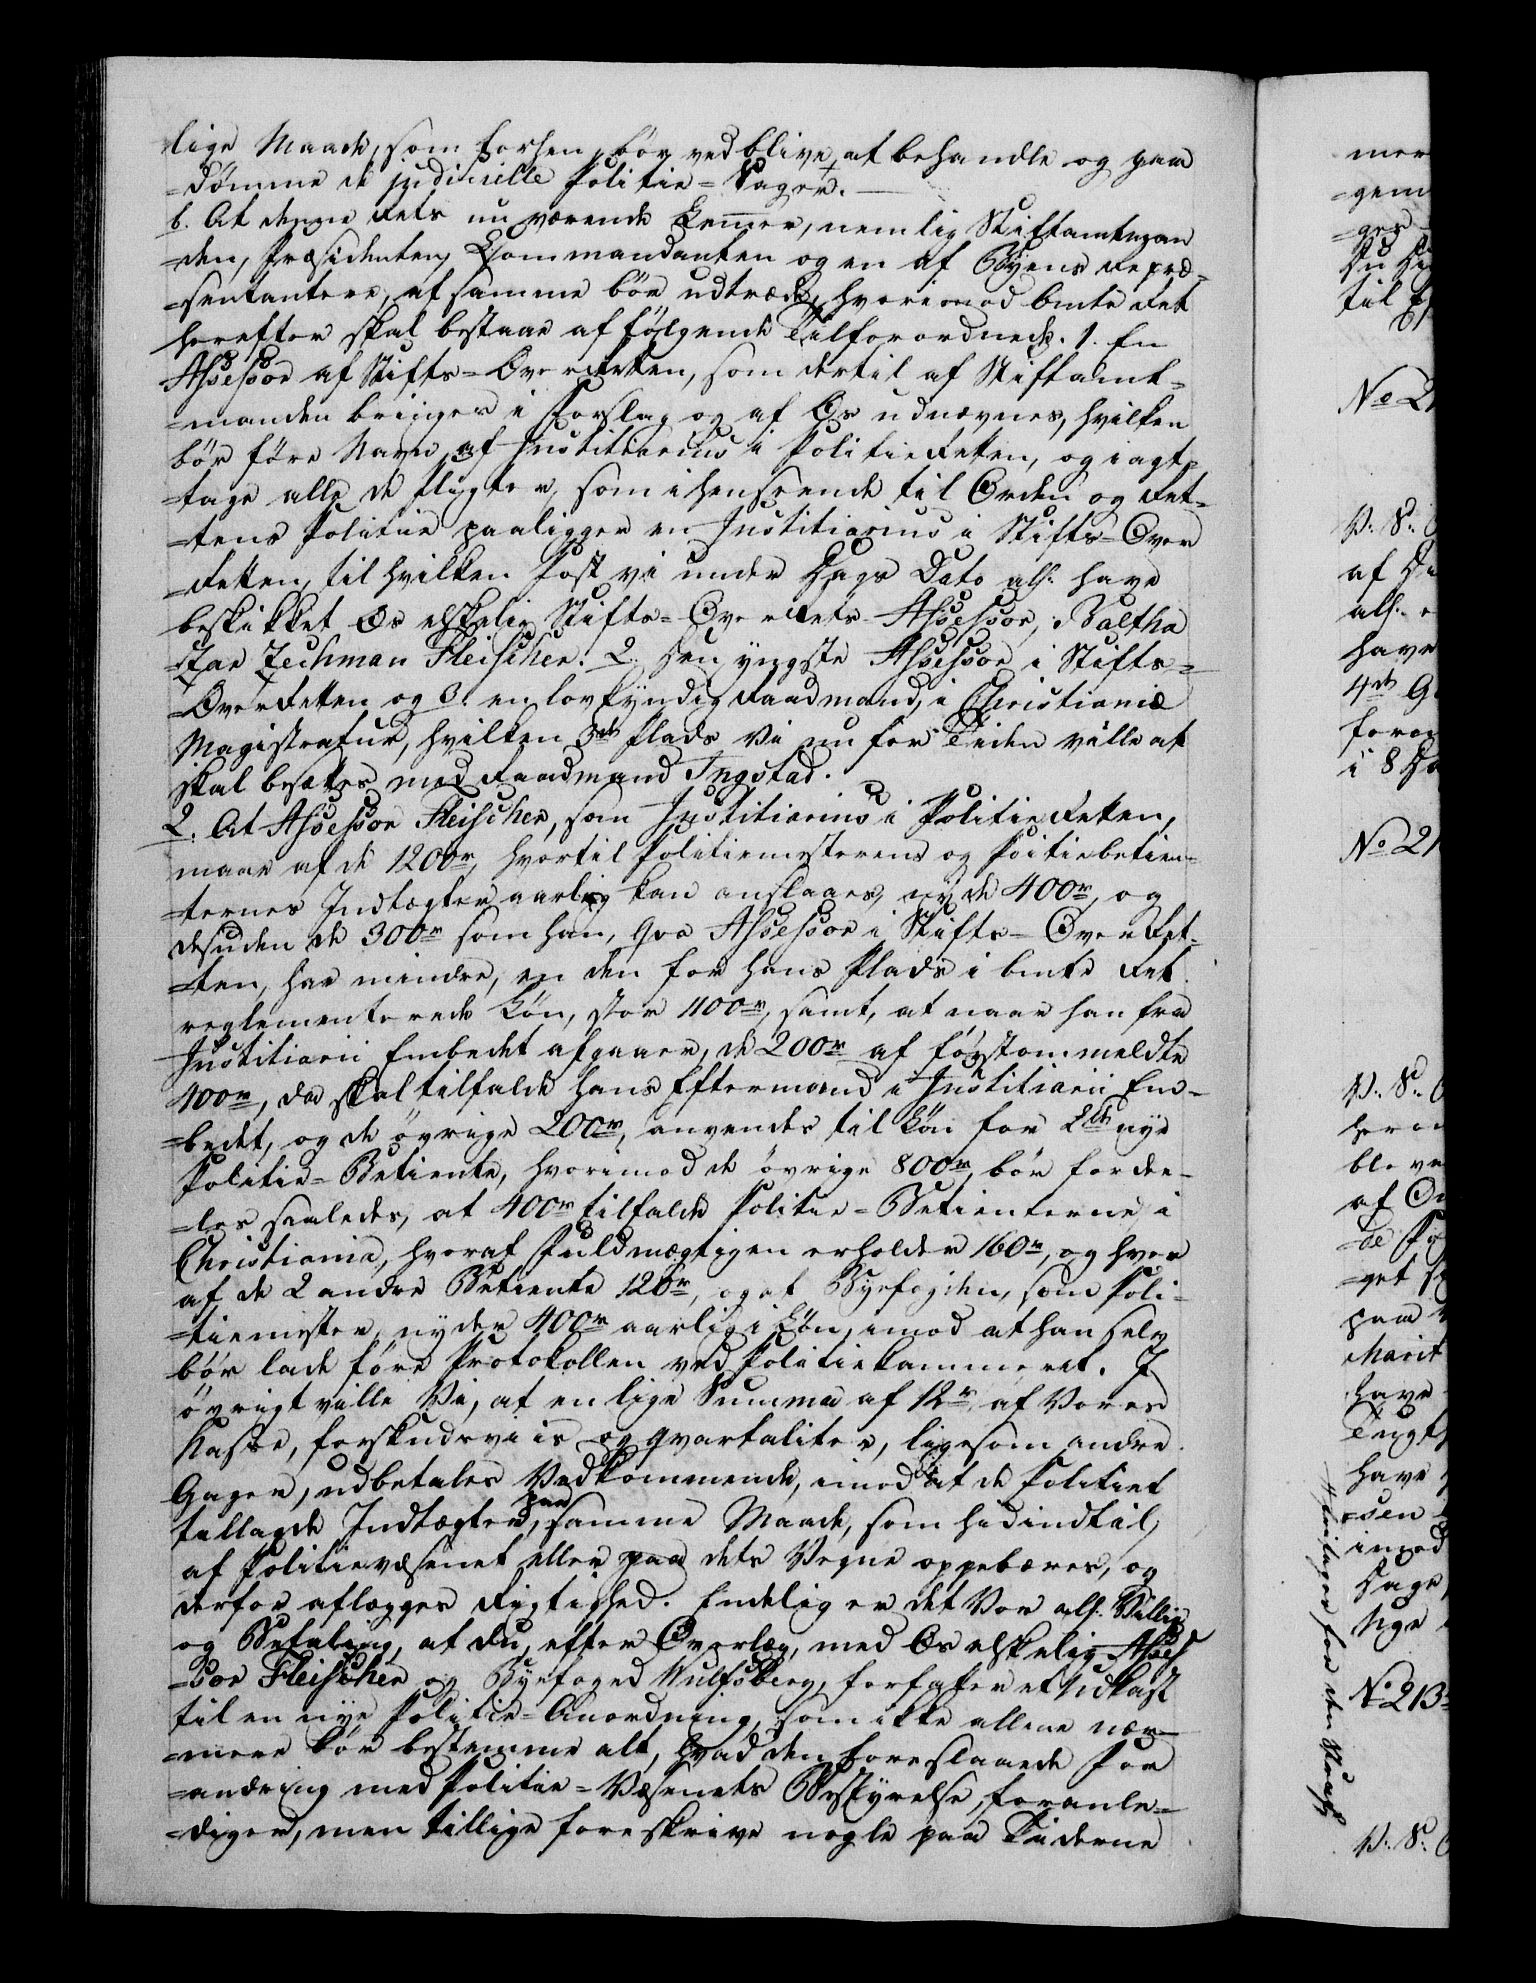 lige Maade, som forhen, bör vedblive, at behandle og paa
=dömme de judicielle Politie=Sager.
b. At denne Rets nu værende Lemer, nemlig Stiftamtman
=den, Præsidenten, Commandanten og en af Byens Repræ=
=sentantere, af samme bör udtræde, hvorimod bmte Ret
herefter skal bestaae af fölgende Tilforordnede. 1. En
Assessor af Stifts=Overretten, som dertil af Stiftamt=
=manden bringes i Forslag og af Os udnævnes, hvilken
bör före Navn af Justitiarius i Politieretten, og iagt=
=tage alle de Pligter, som i henseende til Orden og Ret=
=tens Politie paaligger en Justitiarius i Stifts=Over
=Retten, til hvilken Post vi under Dags Dato all: have
beskikket Os elskelig Stifts=Overrets=Assessor, Baltha
zar Zechman Fleischer. 2. Den yngste Assessor i Stifts=
=Overretten og 3. en lovkyndig Raadmand i Christiania
Magistratur, hvilken 3de Plads Vi nu for Tiden ville at
skal besættes med Raadmand Ingstad.
2. At Assessor Fleischer, som Justitiarius i Politieretten,
maae af de 1200r, hvortil Politiemesterens og Poitiebetien=
=ternes Indtægter aarlig kan anslaaes, nyde 400r, og
desuden de 300r som han, qva Assessor i Stifts=Overret=
=ten, har mindre, en den for hans Plads i bmte Ret
reglementerede Lön, stor 1100r, samt, at naar han fra
Justitiarii Embedet afgaaer, de 200r af förstommeldte
400r, da skal tilfalde hans Eftermand i Justitiarii Em=
=bedet, og de övrige 200r, anvendes til Lön for 2de nye
Politie=Betiente, hvorimod de övrige 800r, bör forde=
=les saaledes, at 400r tilfalde Politie=Betienterne i
Christiania, hvoraf Fuldmægtigen erholder 160r, og hver
af de 2 andre Betiente 120r, og at Byefogden, som Poli=
=tiemester, nyder 400r aarlig i Lön, imod at han selv
bör lade före Protokollen ved Politiekammeret. I
övrigt ville Vi, at en lige Summa af 12r af Vores
Kasse, forskudsviis og qvartaliter, ligesom andre
Gager, udbetales Vedkommende, imod at de Politiet
tillagde Indtægter, paa samme Maade, som hidindtil,
af Politievæsenet eller paa dets Vegne oppebæres, og
derfor aflægges Rigtighed. Endelig er det Vor all: Villie
og Befaling, at du, efter Overlæg, med Os elskelig Asses
=sor Fleischer og Byefoged Wulfsberg, forfatter et Udkast
til en nye Politie=Anordning, som ikke allene nær=
=mere bör bestemme alt, hvad den foreslaaede For
=andring med Politie=Væsenets Bestyrelse, foranle=
=diger, men tillige foreskrive nogle paa Tiderne
mer
=gem
=ger
til
No 21
V. S.
af
all:
have
4de
foror
i 8
No 21
V. S.
ble ve
af
=de
=get
paa
Marit
have
Tugt
have
=sen
imod
Dage
lige
No 213
V. S.